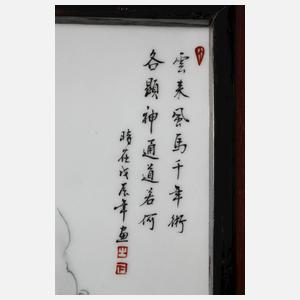 雲来風馬千年術
各顯神通道若何
時在戊辰年画